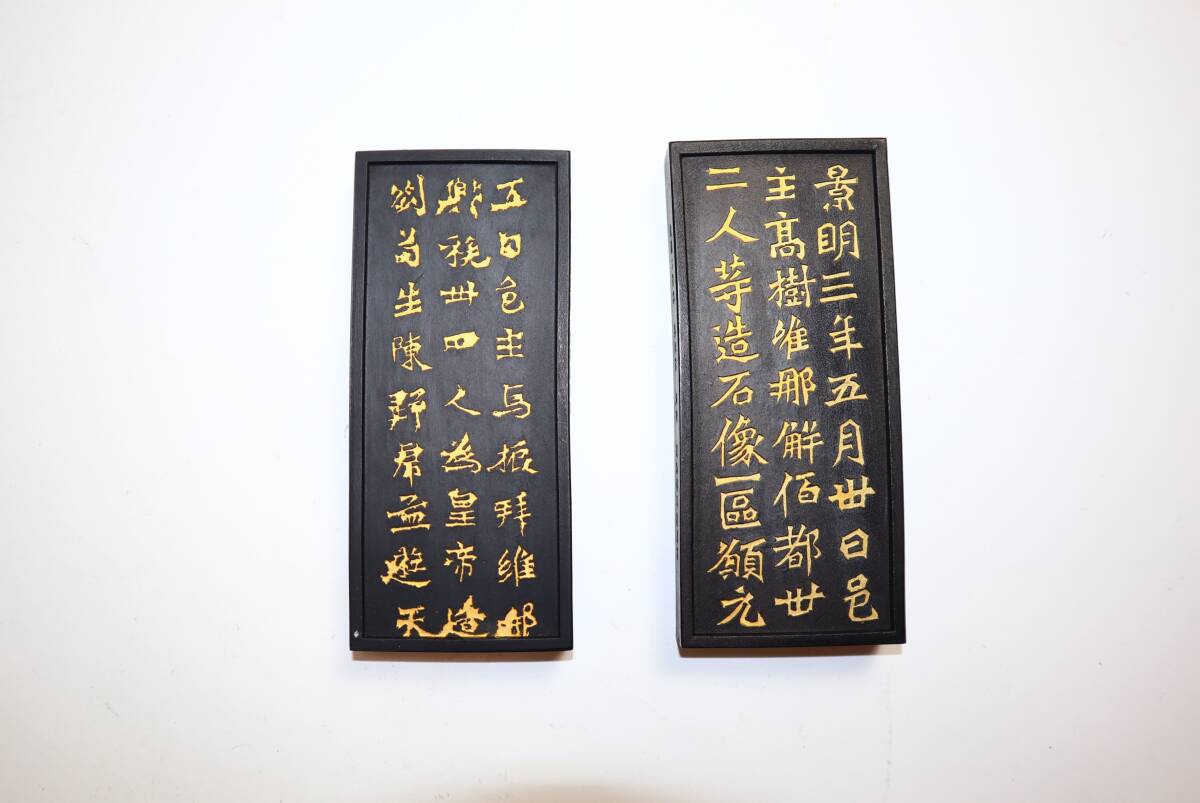 景明三年五月丗日邑
主髙樹唯那解佰都丗
二人等造石像一區願元
五日邑主馬振拜維那
興族丗四人為皇帝造
劉苟生陳野虎孟遊天